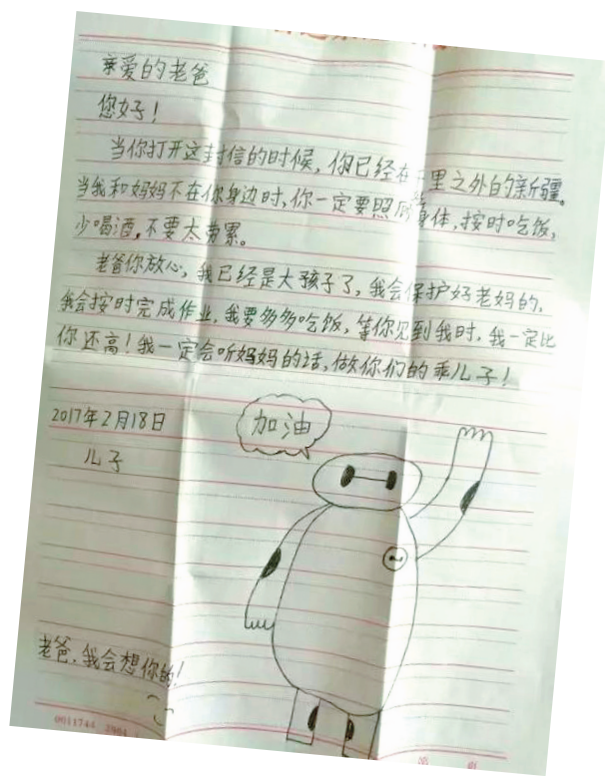 亲爱的老爸
您好!
当你打开这封信的时候,你已经在千里之外的新疆。
当我和妈妈不在你身边时,你一定要照顾身体,按时吃饭,
少喝酒,不要太劳累。
老爸你放心,我已经是大孩子了,我会保护好老妈的,
我会按时完成作业,我要多多吃饭,等你见到我时,我一定比
你还高!我一定会听妈妈的话,做你们的乖儿子!
2017年2月18日
加油
儿子
老爸,我会想你的!
0011744
第 页